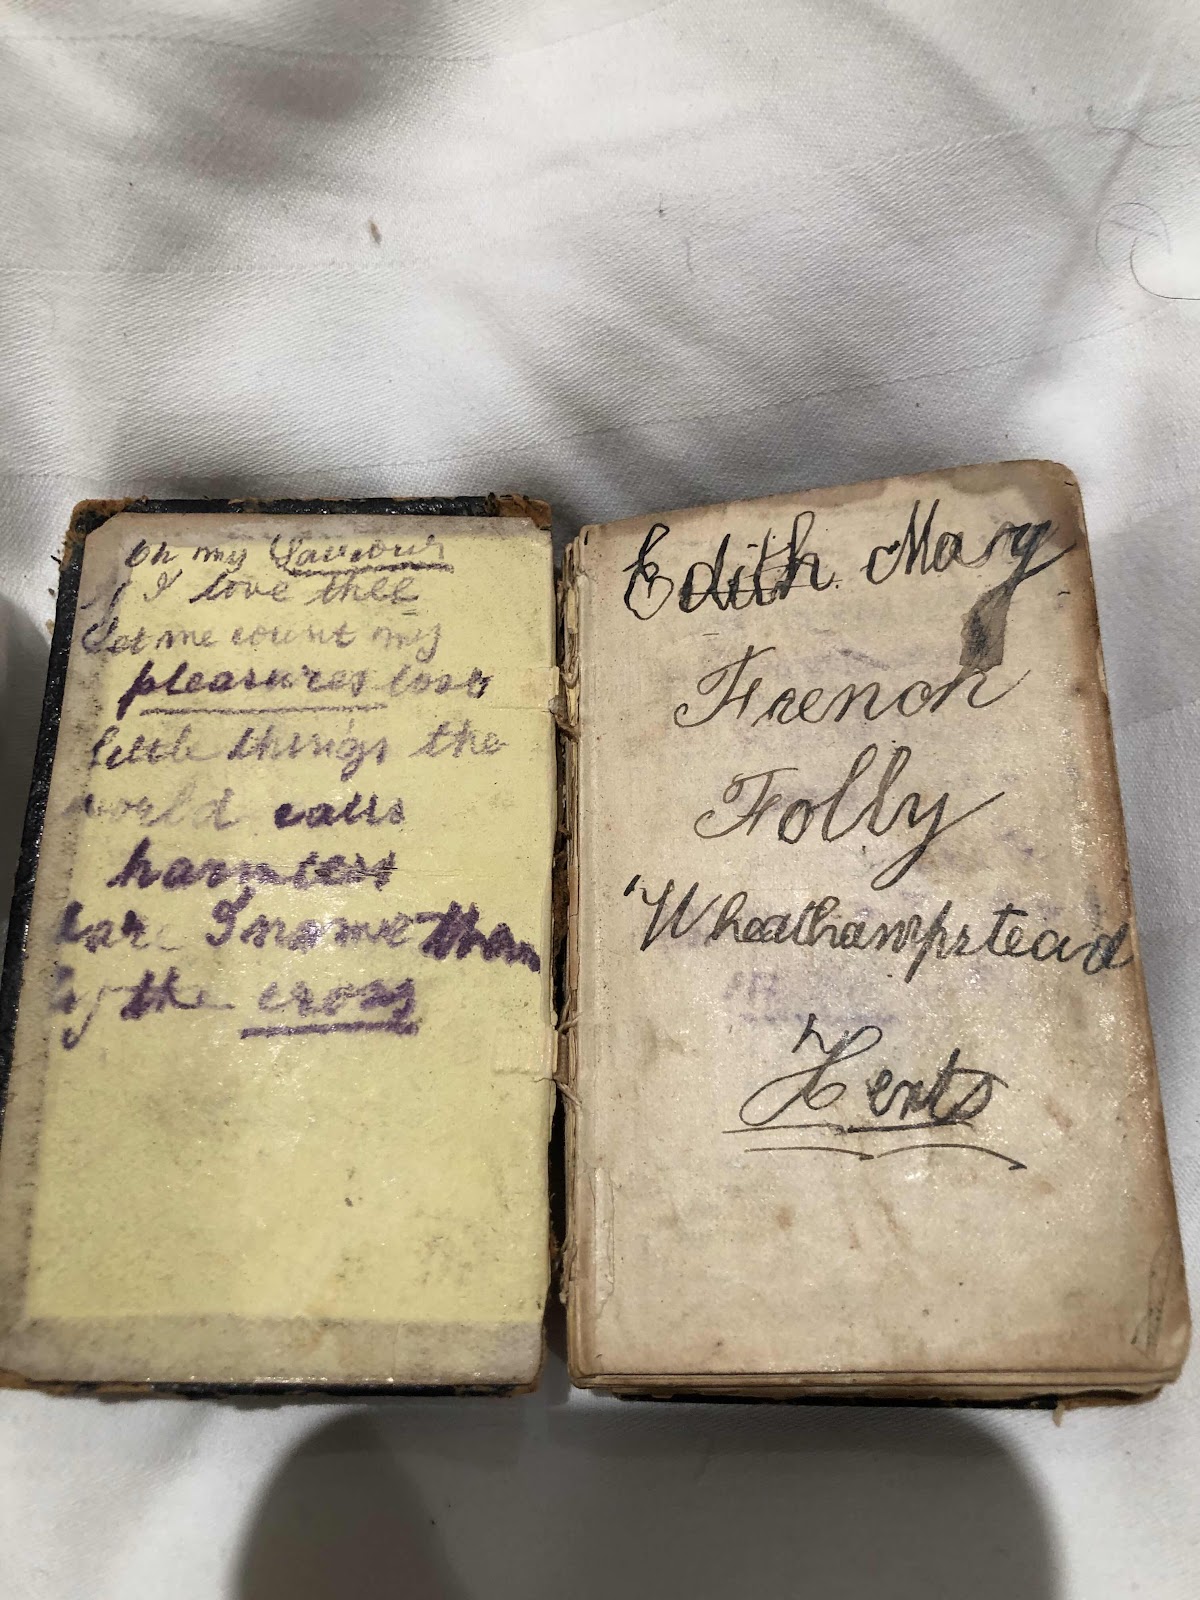 Oh my Saviour
if I love thee
Let me count my
pleasures loss
little things the
world calls
harmless
Are name than
by the cross
Edith Mary
French
Folly
Wheathampstead
Herts